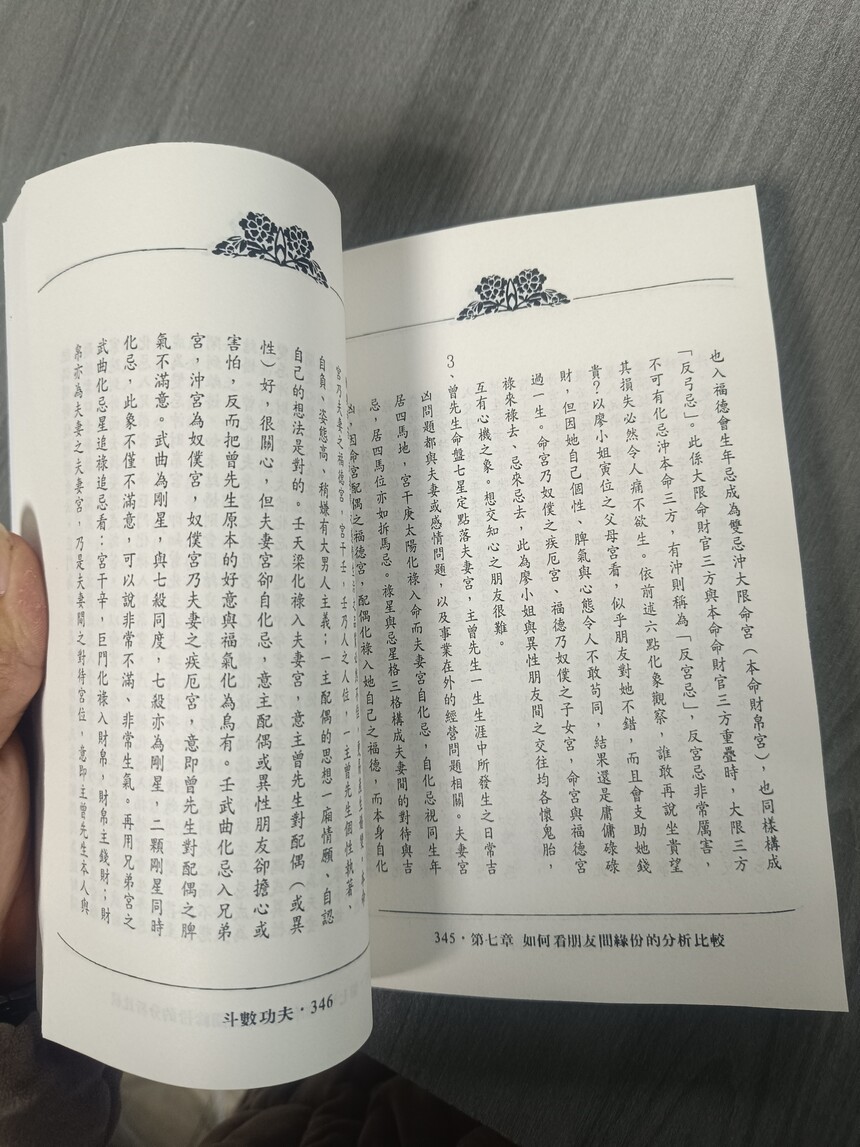 也入福德會生年忌成為雙忌沖大限命宮（本命財帛宮），也同樣構成
「反弓忌」。此係大限命財官三方與本命命財官三方重疊時，大限三方
不可有化忌沖本命三方，有沖則稱為「反宮忌」，反宮忌非常厲害，
其損失必然令人痛不欲生。依前述六點化象觀察，誰敢再說坐貴望
貴？以廖小姐寅位之父母宮看，似乎朋友對她不錯，而且會支助她錢
財，但因她自己個性、脾氣與心態令人不敢苟同，結果還是庸庸碌碌
過一生。命宮乃奴僕之疾厄宮、福德乃奴僕之子女宮，命宮與福德宮
祿來祿去、忌來忌去，此為廖小姐與異性朋友間之交往均各懷鬼胎，
互有心機之象。想交知心之朋友很難。
3、曾先生命盤七星定點落夫妻宮，主曾先生一生生涯中所發生之日常吉
凶問題都與夫妻或感情問題，以及事業在外的經營問題相關。夫妻宮
居四馬地，宮干庚太陽化祿入命而夫妻宮自化忌，自化忌視同生年
忌，居四馬位亦如拆馬忌。祿星與忌星格三格構成夫妻間的對待與吉
凶，因命宮配偶之福德宮，配偶化祿入她自己之福德，而本身自化
345·第七章 如何看朋友間緣份的分析比較
宮乃夫妻之福德宮，宮干壬，壬乃人之人位，一主曾先生個性執著、
自負、姿態高、稍嫌有大男人主義；一主配偶的思想一廂情願、自認
自己的想法是對的。壬天梁化祿入夫妻宮，意主曾先生對配偶（或異
性）好，很關心，但夫妻宮卻自化忌，意主配偶或異性朋友卻擔心或
害怕，反而把曾先生原本的好意與福氣化為烏有。壬武曲化忌入兄弟
宮，沖宮為奴僕宮，奴僕宮乃夫妻之疾厄宮，意即曾先生對配偶之脾
氣不滿意。武曲為剛星，與七殺同度，七殺亦為剛星，二顆剛星同時
化忌，此象不僅不滿意，可以說非常不滿、非常生氣。再用兄弟宮之
武曲化忌星追祿追忌看：宮干辛，巨門化祿入財帛，財帛主錢財；財
帛亦為夫妻之夫妻宮，乃是夫妻間之對待宮位，意即主曾先生本人與
斗數功夫·346